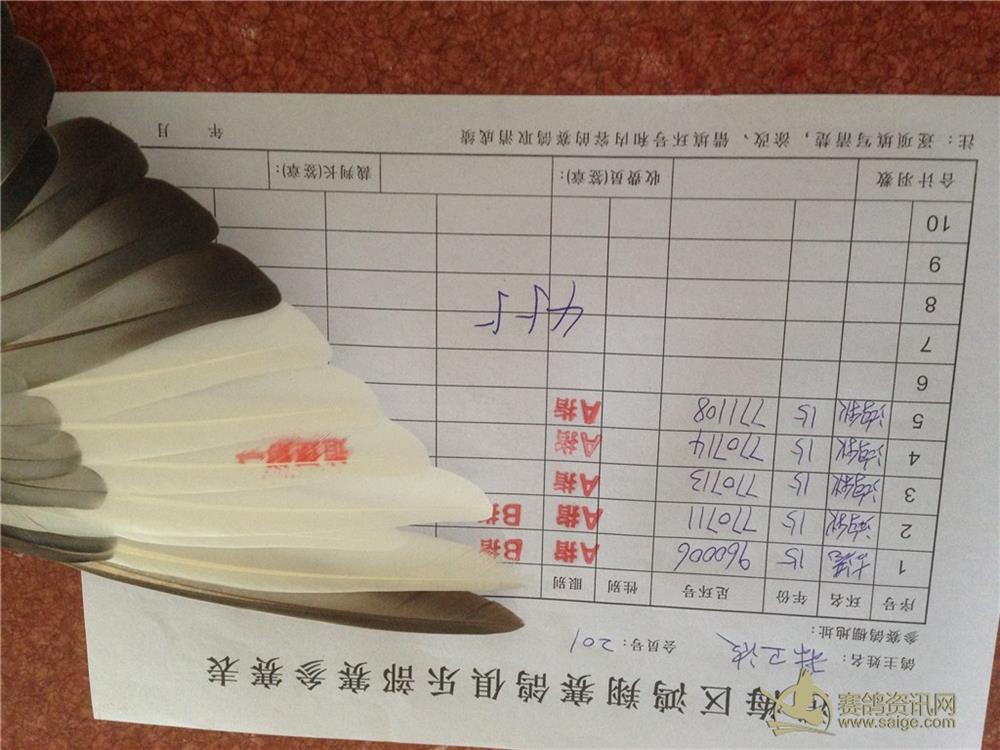 海区鸿翔赛鸽俱乐部赛参赛表
鸽主姓名： 会员号：201
参赛鸽棚地址：
序号 环名 年份 足环号 性别 眼别
1 15 960006 A指 B指
2 15 770711 A指 B指
3 15 770713 A指
4 15 770714 A指
5 15 771108 A指
6
7
8 455
9
10
合计羽数 收费员(签章)： 裁判长(签章)：
注：逐项填写清楚，涂改、错填环号和内容的赛鸽取消成绩
年 月
赛鸽资讯网
www.saige.com